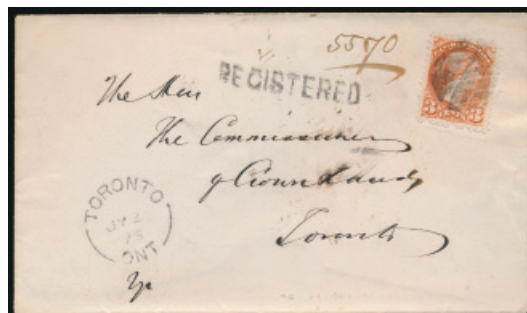 5570
REGISTERED
3 3
The Hon
The Commissioner
of Crown Lands
Toronto
TORONTO
JY 2
75
ONT